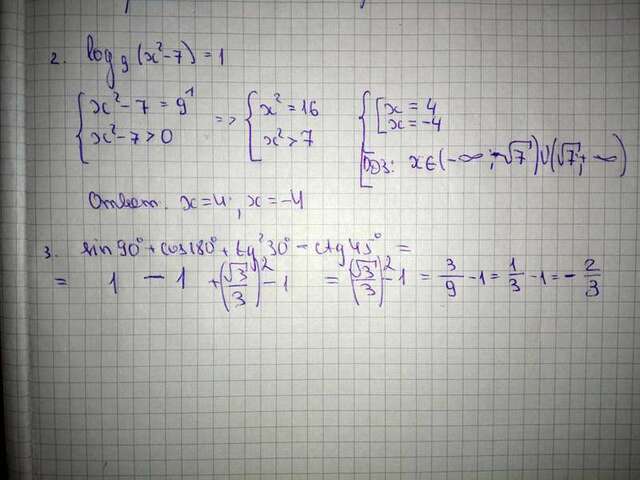 2. log₉ (x²-7) = 1
{ x² - 7 = 9¹ => { x² = 16 { [ x = 4
x² - 7 > 0 x² > 7 x = -4
ОДЗ: x∈(-∞; -√7)∪(√7; +∞)
Ответ: x=4; x=-4
3. sin 90° + cos 180° + tg² 30° - ctg 45° =
= 1 - 1 + (√3/3)² - 1 = (√3/3)² - 1 = 3/9 - 1 = 1/3 - 1 = - 2/3